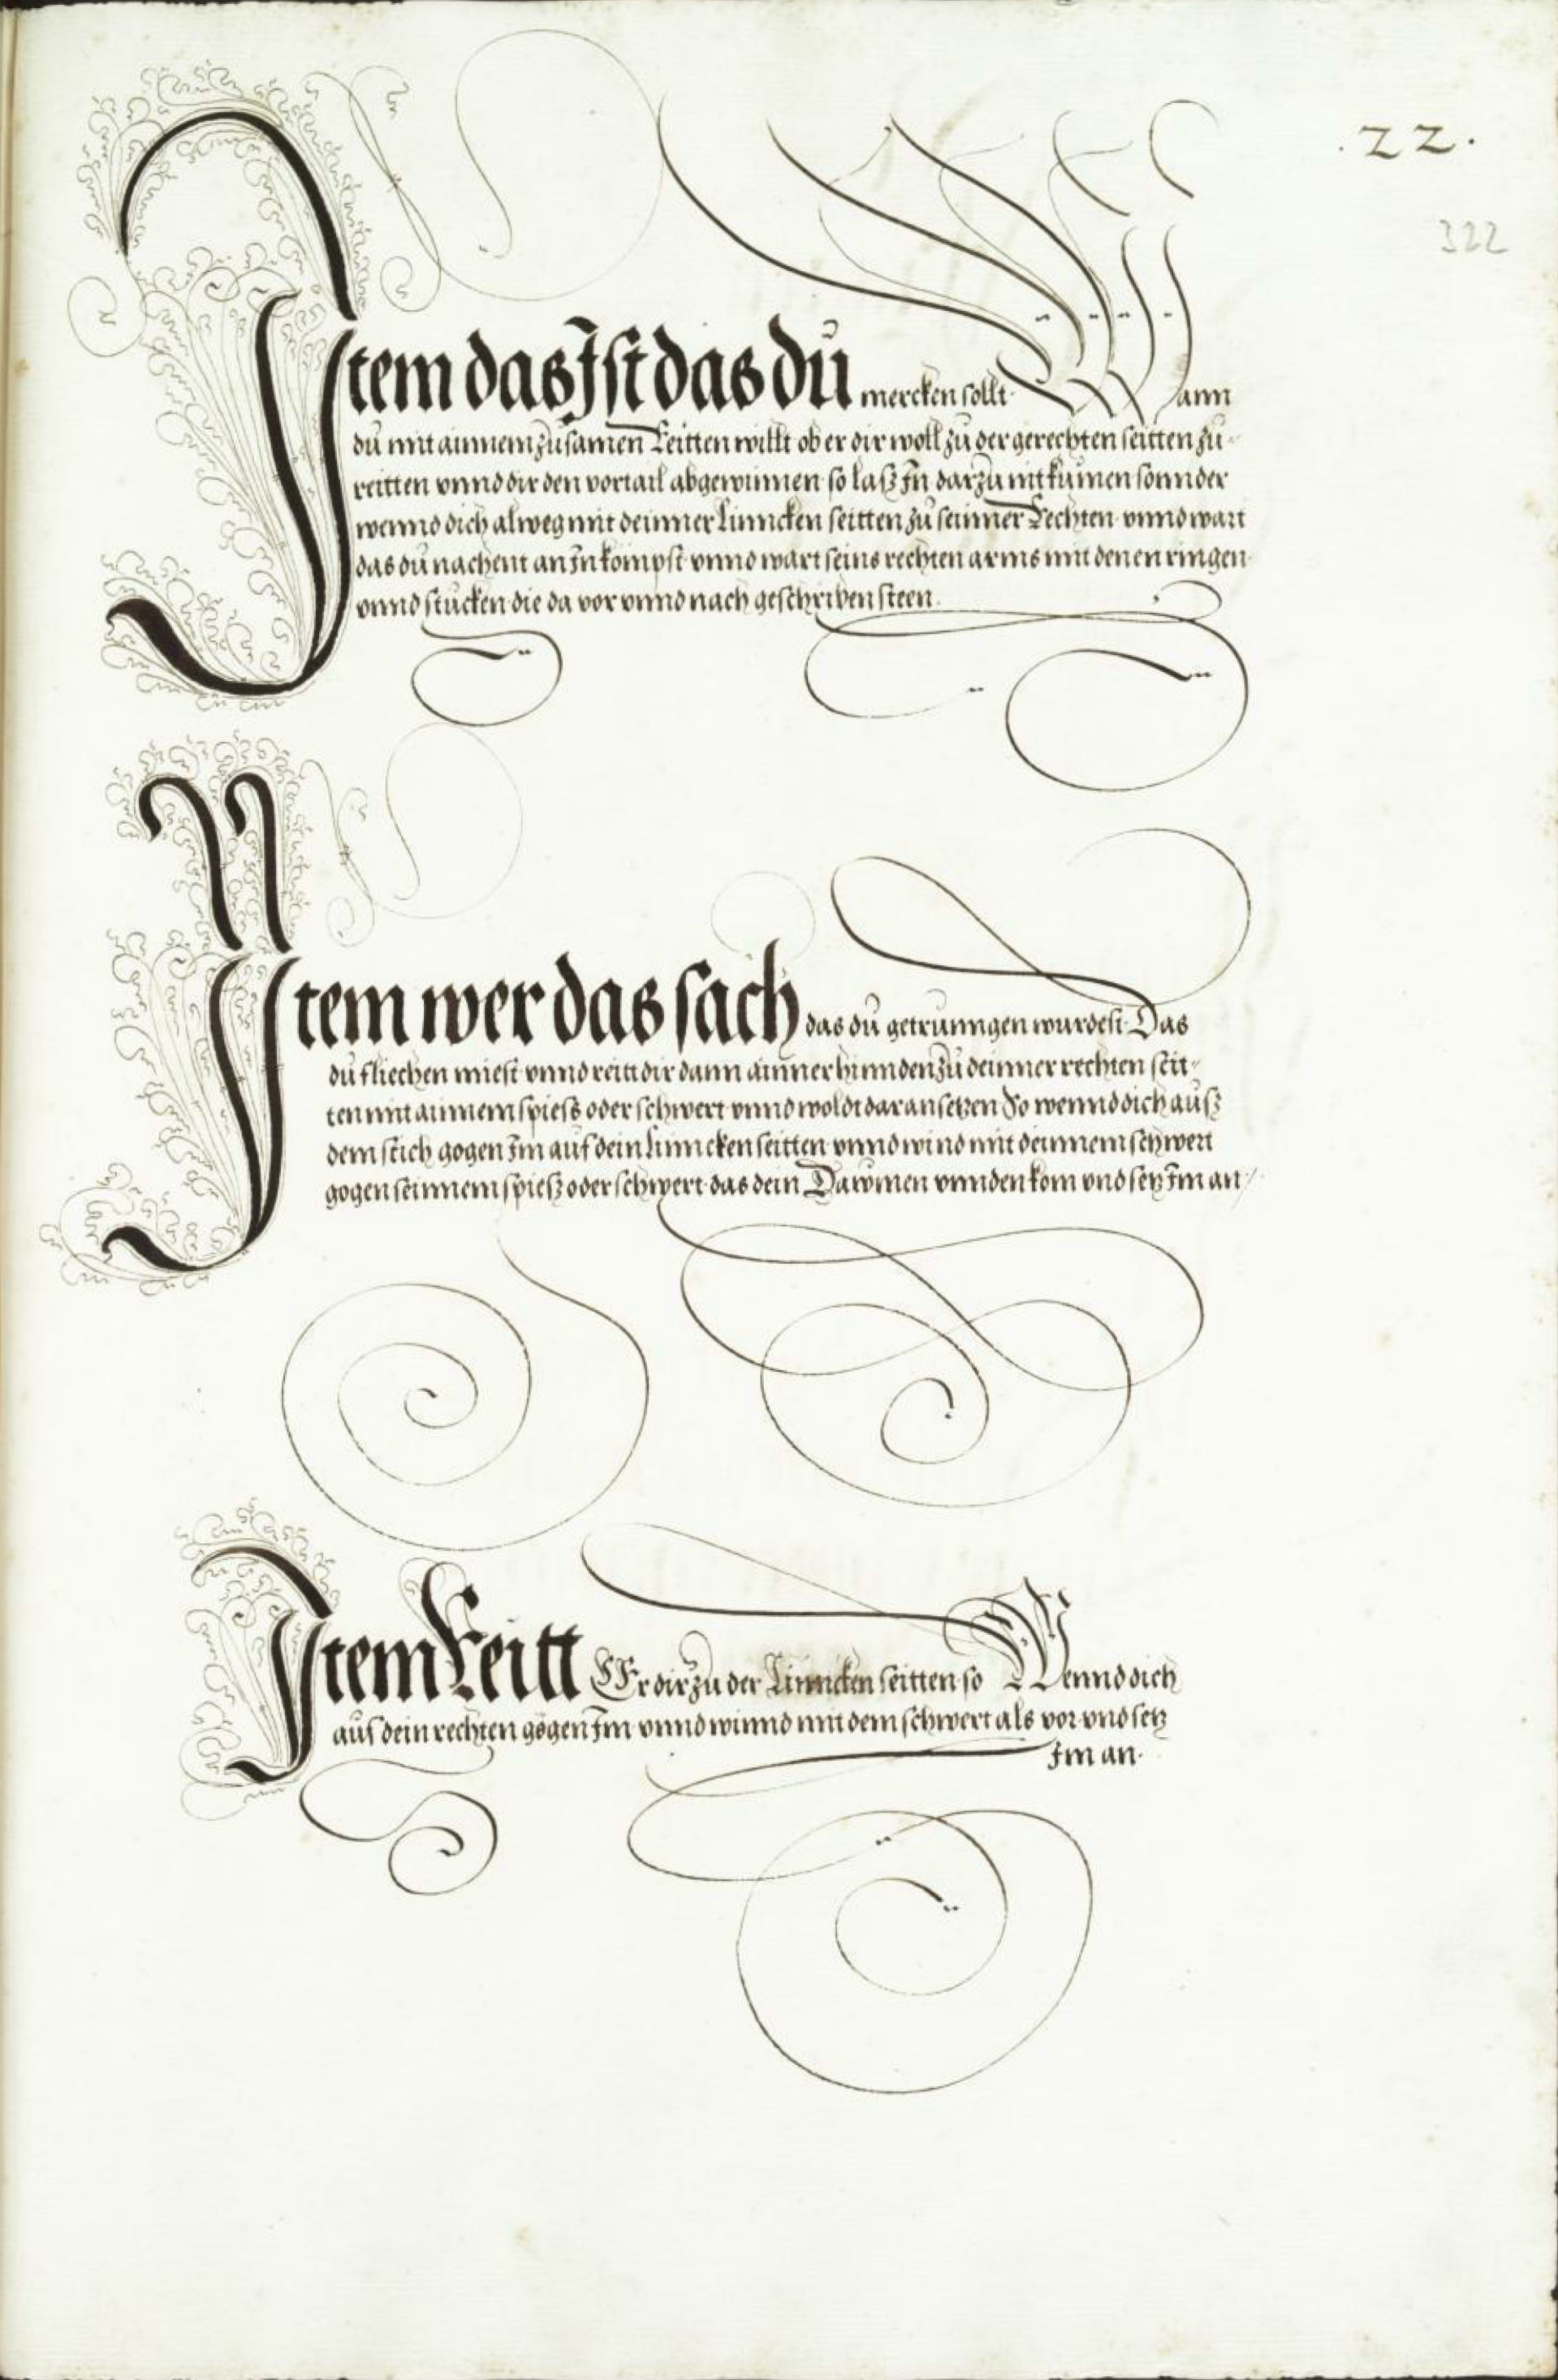 .22.
322
Item das Ist das dű mercken sollt Wann
dű mit ainnem zűsamen Reitten willt ob er dir woll zű der gerechten seitten zű-
reitten vnnd dir den vortail abgewinnen so laß In darzű nit kumen sonnder
wennd dich alweg mit deinner linncken seitten zű seinner Rechten vnnd wart
das dű nachent an In kompst vnnd wart seins rechten arms mit denen ringen
vnnd stucken die da vor vnnd nach geschriben steen.
Item wer das sach das dű getrunngen wurdest Das
dű fliechen miest vnnd reitt dir dann ainner hinnden zű deinner rechten seit-
ten mit ainnem spiess oder schwert vnnd woldt dar an setzen So wennd dich auß
dem stich gogen Im auf dein linncken seitten vnnd wind mit deinnem schwert
gogen seinnem spieß oder schwert das dein Dawmen vnnden kom vnd setz Im an
Item Reitt Er dir zű der Linncken seitten so Wennd dich
auf dein rechten gögen Im vnnd winnd mit dem schwert als vor vnd setz
Im an.